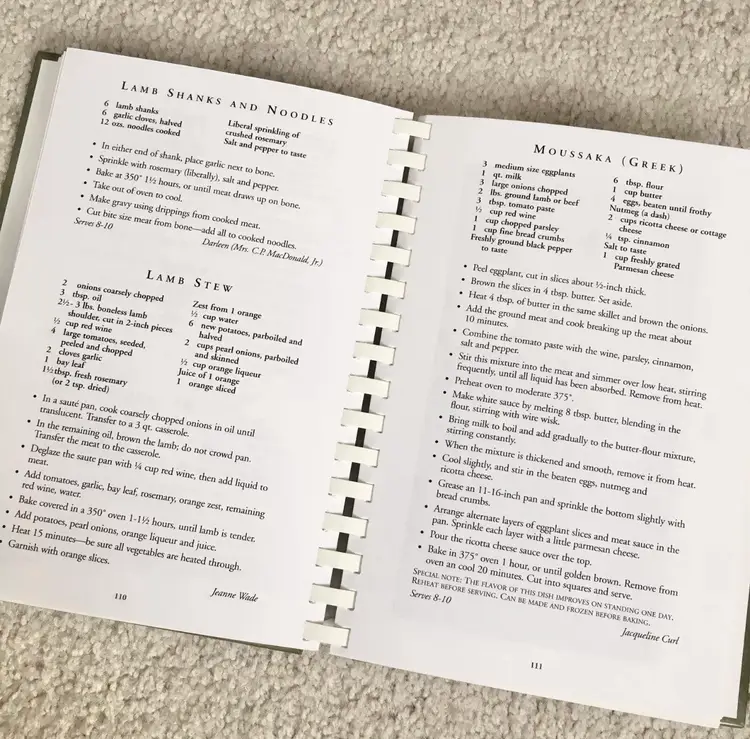 LAMB SHANKS AND NOODLES
6 lamb shanks
6 garlic cloves, halved
12 ozs. noodles cooked
Liberal sprinkling of
crushed rosemary
Salt and pepper to taste
• In either end of shank, place garlic next to bone.
• Sprinkle with rosemary (liberally), salt and pepper.
• Bake at 350° 1½ hours, or until meat draws up on bone.
• Take out of oven to cool.
• Make gravy using drippings from cooked meat.
• Cut bite size meat from bone—add all to cooked noodles.
Serves 8-10
Darleen (Mrs. C.P. MacDonald, Jr.)
LAMB STEW
2 onions coarsely chopped
3 tbsp. oil
2½-3 lbs. boneless lamb
shoulder, cut in 2-inch pieces
½ cup red wine
4 large tomatoes, seeded,
peeled and chopped
2 cloves garlic
1 bay leaf
1½ tbsp. fresh rosemary
(or 2 tsp. dried)
Zest from 1 orange
½ cup water
6 new potatoes, parboiled and
halved
2 cups pearl onions, parboiled
and skinned
½ cup orange liqueur
Juice of 1 orange
1 orange sliced
• In a sauté pan, cook coarsely chopped onions in oil until
translucent. Transfer to a 3 qt. casserole.
• In the remaining oil, brown the lamb; do not crowd pan.
Transfer the meat to the casserole.
• Deglaze the saute pan with ¼ cup red wine, then add liquid to
meat.
• Add tomatoes, garlic, bay leaf, rosemary, orange zest, remaining
red wine, water.
• Bake covered in a 350° oven 1-1½ hours, until lamb is tender.
• Add potatoes, pearl onions, orange liqueur and juice.
• Heat 15 minutes—be sure all vegetables are heated through.
• Garnish with orange slices.
Jeanne Wade
110
MOUSSAKA (GREEK)
3 medium size eggplants
1 qt. milk
3 large onions chopped
2 lbs. ground lamb or beef
3 tbsp. tomato paste
½ cup red wine
1 cup chopped parsley
1 cup fine bread crumbs
Freshly ground black pepper
to taste
6 tbsp. flour
1 cup butter
4 eggs, beaten until frothy
Nutmeg (a dash)
2 cups ricotta cheese or cottage
cheese
¼ tsp. cinnamon
Salt to taste
1 cup freshly grated
Parmesan cheese
• Peel eggplant, cut in slices about ½-inch thick.
• Brown the slices in 4 tbsp. butter. Set aside.
• Heat 4 tbsp. of butter in the same skillet and brown the onions.
• Add the ground meat and cook breaking up the meat about
10 minutes.
• Combine the tomato paste with the wine, parsley, cinnamon,
salt and pepper.
• Stir this mixture into the meat and simmer over low heat, stirring
frequently, until all liquid has been absorbed. Remove from heat.
• Preheat oven to moderate 375°.
• Make white sauce by melting 8 tbsp. butter, blending in the
flour, stirring with wire wisk.
• Bring milk to boil and add gradually to the butter-flour mixture,
stirring constantly.
• When the mixture is thickened and smooth, remove it from heat.
• Cool slightly, and stir in the beaten eggs, nutmeg and
ricotta cheese.
• Grease an 11-16-inch pan and sprinkle the bottom slightly with
bread crumbs.
• Arrange alternate layers of eggplant slices and meat sauce in the
pan. Sprinkle each layer with a little parmesan cheese.
• Pour the ricotta cheese sauce over the top.
• Bake in 375° oven 1 hour, or until golden brown. Remove from
oven an cool 20 minutes. Cut into squares and serve.
SPECIAL NOTE: THE FLAVOR OF THIS DISH IMPROVES ON STANDING ONE DAY.
REHEAT BEFORE SERVING. CAN BE MADE AND FROZEN BEFORE BAKING.
Serves 8-10
Jacqueline Curl
111